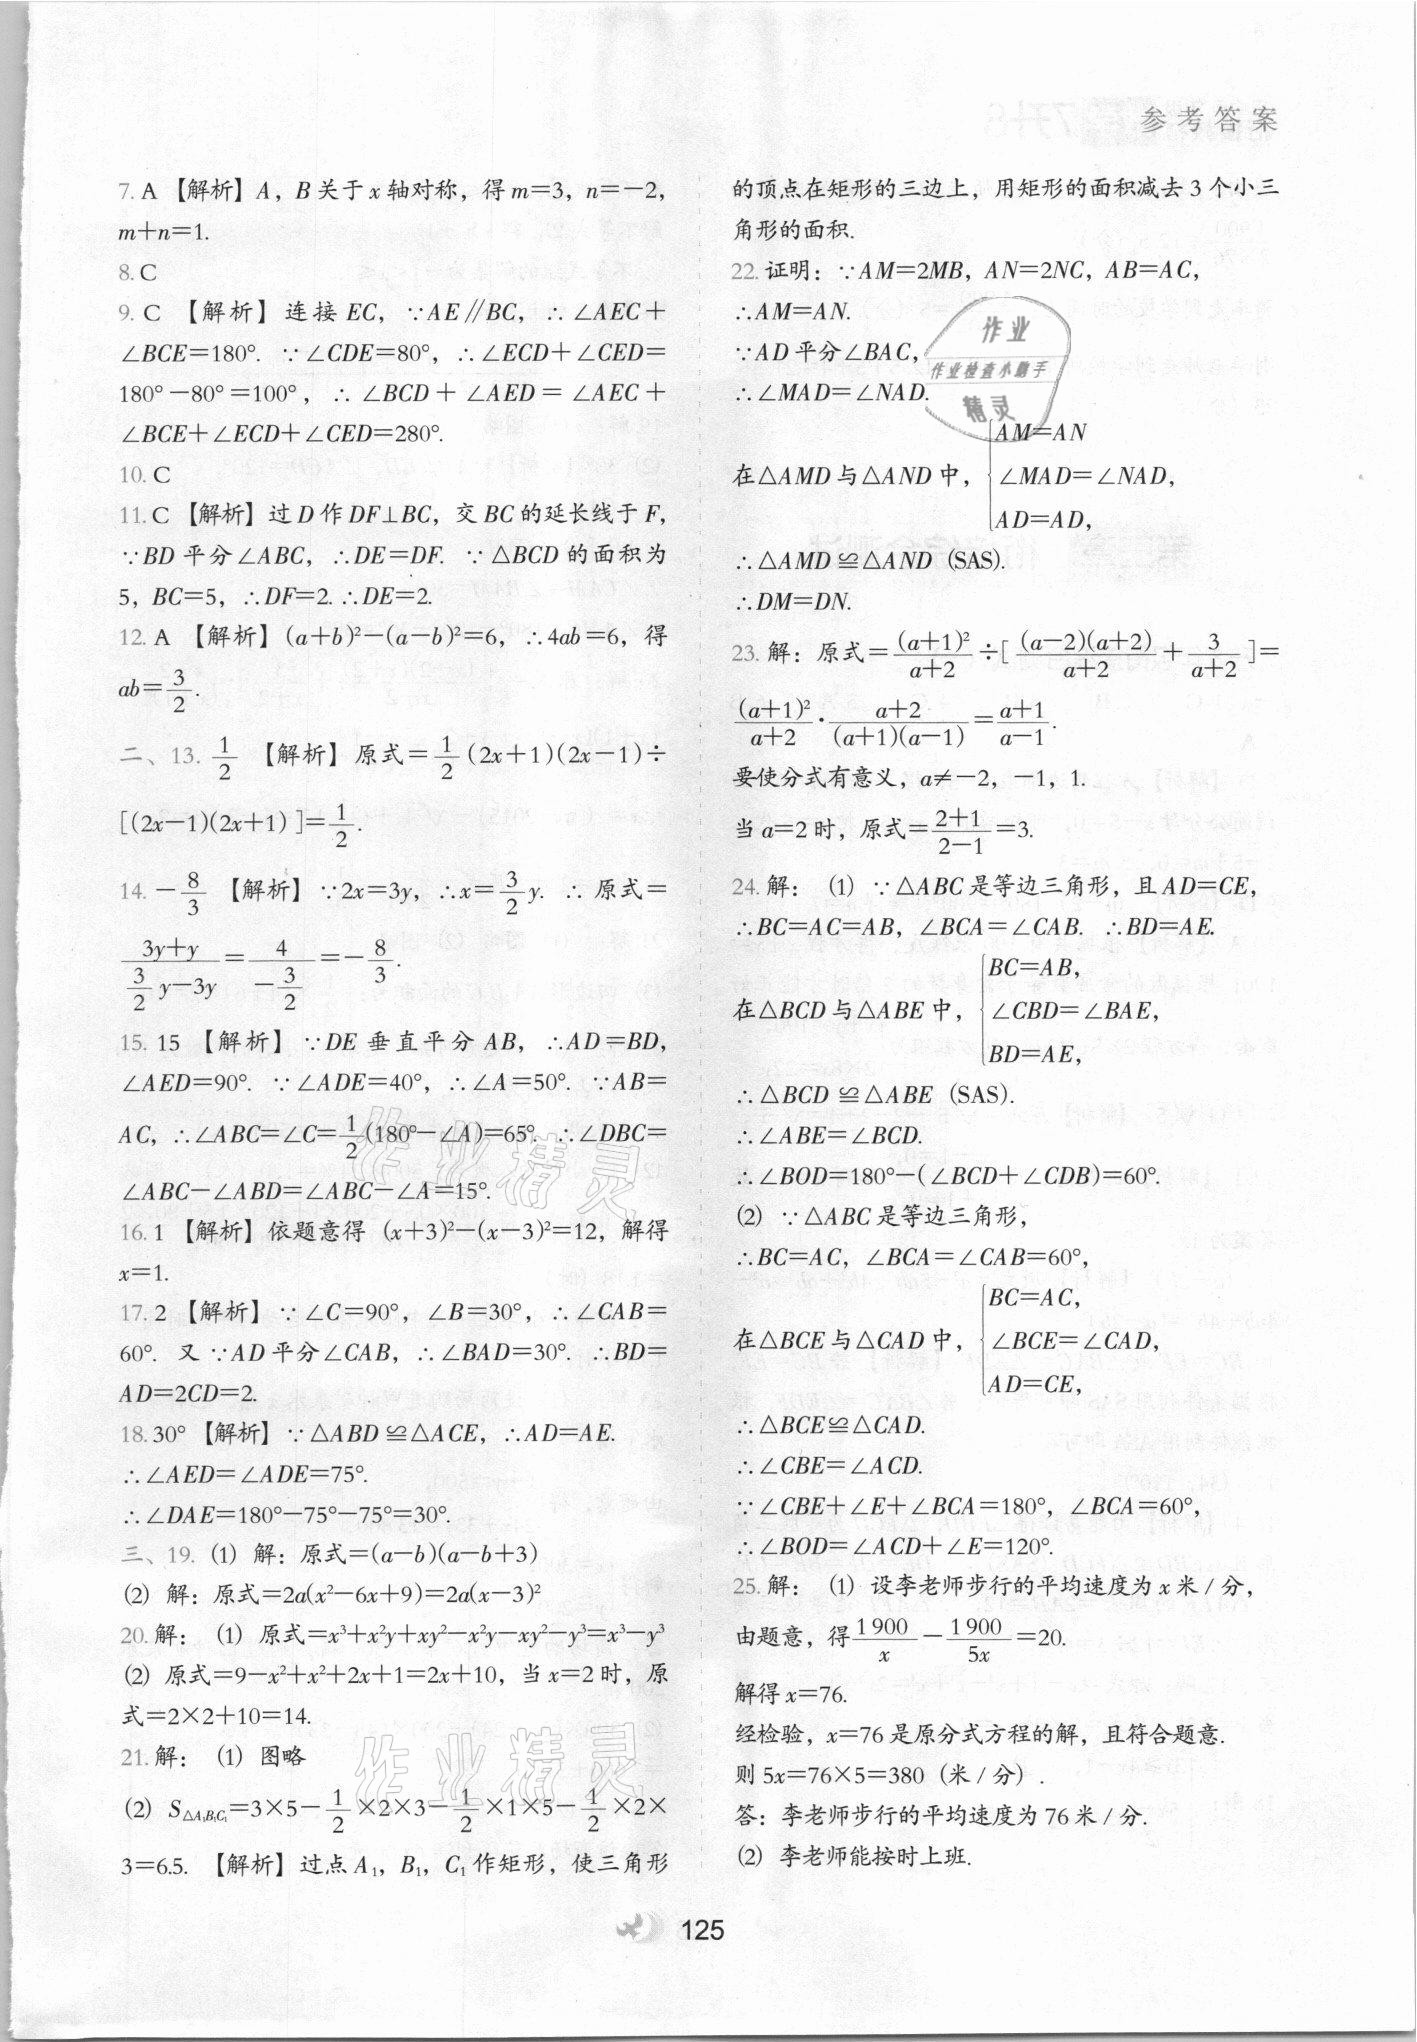 参考答案
7. A 【解析】A，B关于x轴对称，得m=3，n=-2，
m+n=1.
8. C
9. C 【解析】连接EC，∵AE∥BC，∴∠AEC+
∠BCE=180°. ∵∠CDE=80°，∴∠ECD+∠CED=
180°-80°=100°，∴∠BCD+∠AED=∠AEC+
∠BCE+∠ECD+∠CED=280°.
10. C
11. C 【解析】过D作DF⊥BC，交BC的延长线于F，
∵BD平分∠ABC，∴DE=DF. ∵△BCD的面积为
5，BC=5，∴DF=2. ∴DE=2.
12. A 【解析】(a+b)²-(a-b)²=6，∴4ab=6，得
ab=3/2.
二、13. 1/2 【解析】原式=1/2(2x+1)(2x-1)÷
[(2x-1)(2x+1)]=1/2.
14. -8/3 【解析】∵2x=3y，∴x=3/2 y. ∴原式=
(3y+y)/(3/2 y-3y)=4/(-3/2)=-8/3.
15. 15 【解析】∵DE垂直平分AB，∴AD=BD，
∠AED=90°. ∵∠ADE=40°，∴∠A=50°. ∵AB=
AC，∴∠ABC=∠C=1/2(180°-∠A)=65°. ∴∠DBC=
∠ABC-∠ABD=∠ABC-∠A=15°.
16. 1 【解析】依题意得 (x+3)²-(x-3)²=12，解得
x=1.
17. 2 【解析】∵∠C=90°，∠B=30°，∴∠CAB=
60°. 又∵AD平分∠CAB，∴∠BAD=30°. ∴BD=
AD=2CD=2.
18. 30° 【解析】∵△ABD≌△ACE，∴AD=AE.
∴∠AED=∠ADE=75°.
∴∠DAE=180°-75°-75°=30°.
三、19. (1) 解：原式=(a-b)(a-b+3)
(2) 解：原式=2a(x²-6x+9)=2a(x-3)²
20. 解： (1) 原式=x³+x²y+xy²-x²y-xy²-y³=x³-y³
(2) 原式=9-x²+x²+2x+1=2x+10，当x=2时，原
式=2×2+10=14.
21. 解： (1) 图略
(2) S△A₁B₁C₁=3×5-1/2×2×3-1/2×1×5-1/2×2×
3=6.5. 【解析】过点A₁，B₁，C₁作矩形，使三角形
的顶点在矩形的三边上，用矩形的面积减去3个小三
角形的面积.
22. 证明：∵AM=2MB，AN=2NC，AB=AC，
∴AM=AN.
∵AD平分∠BAC，
∴∠MAD=∠NAD.
AM=AN
在△AMD与△AND中，{∠MAD=∠NAD，
AD=AD，
∴△AMD≌△AND (SAS).
∴DM=DN.
23. 解：原式=(a+1)²/(a+2)÷[(a-2)(a+2)/(a+2)+3/(a+2)]=
(a+1)²/(a+2)·(a+2)/((a+1)(a-1))=(a+1)/(a-1).
要使分式有意义，a≠-2，-1，1.
当a=2时，原式=(2+1)/(2-1)=3.
24. 解： (1) ∵△ABC是等边三角形，且AD=CE，
∴BC=AC=AB，∠BCA=∠CAB. ∴BD=AE.
BC=AB，
在△BCD与△ABE中，{∠CBD=∠BAE，
BD=AE，
∴△BCD≌△ABE (SAS).
∴∠ABE=∠BCD.
∴∠BOD=180°-(∠BCD+∠CDB)=60°.
(2) ∵△ABC是等边三角形，
∴BC=AC，∠BCA=∠CAB=60°，
BC=AC，
在△BCE与△CAD中，{∠BCE=∠CAD，
AD=CE，
∴△BCE≌△CAD.
∴∠CBE=∠ACD.
∵∠CBE+∠E+∠BCA=180°，∠BCA=60°，
∴∠BOD=∠ACD+∠E=120°.
25. 解： (1) 设李老师步行的平均速度为x米/分，
由题意，得1900/x-1900/5x=20.
解得x=76.
经检验，x=76是原分式方程的解，且符合题意.
则5x=76×5=380（米/分）.
答：李老师步行的平均速度为76米/分.
(2) 李老师能按时上班.
作业
作业检查小助手
精灵
作业精灵
作业精灵
125